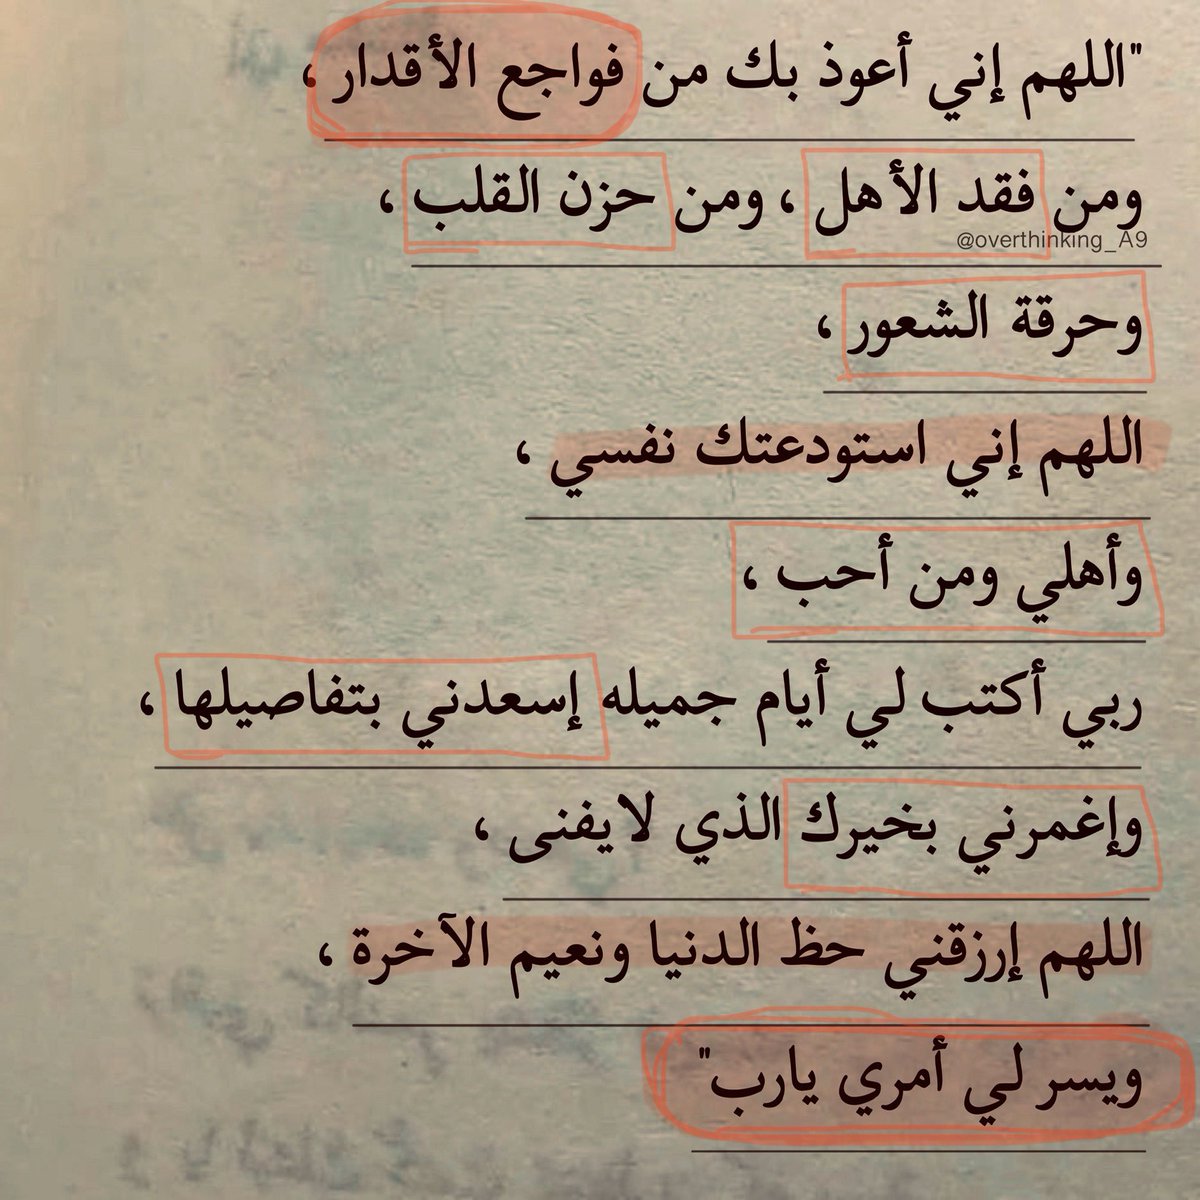 "اللهم إني أعوذ بك من فواجع الأقدار ،
ومن فقد الأهل ، ومن حزن القلب ،
@overthinking_A9
وحرقة الشعور ،
اللهم إني استودعتك نفسي ،
وأهلي ومن أحب ،
ربي أكتب لي أيام جميله إسعدني بتفاصيلها ،
وإغمرني بخيرك الذي لايفنى ،
اللهم إرزقني حظ الدنيا ونعيم الآخرة ،
ويسر لي أمري يارب"